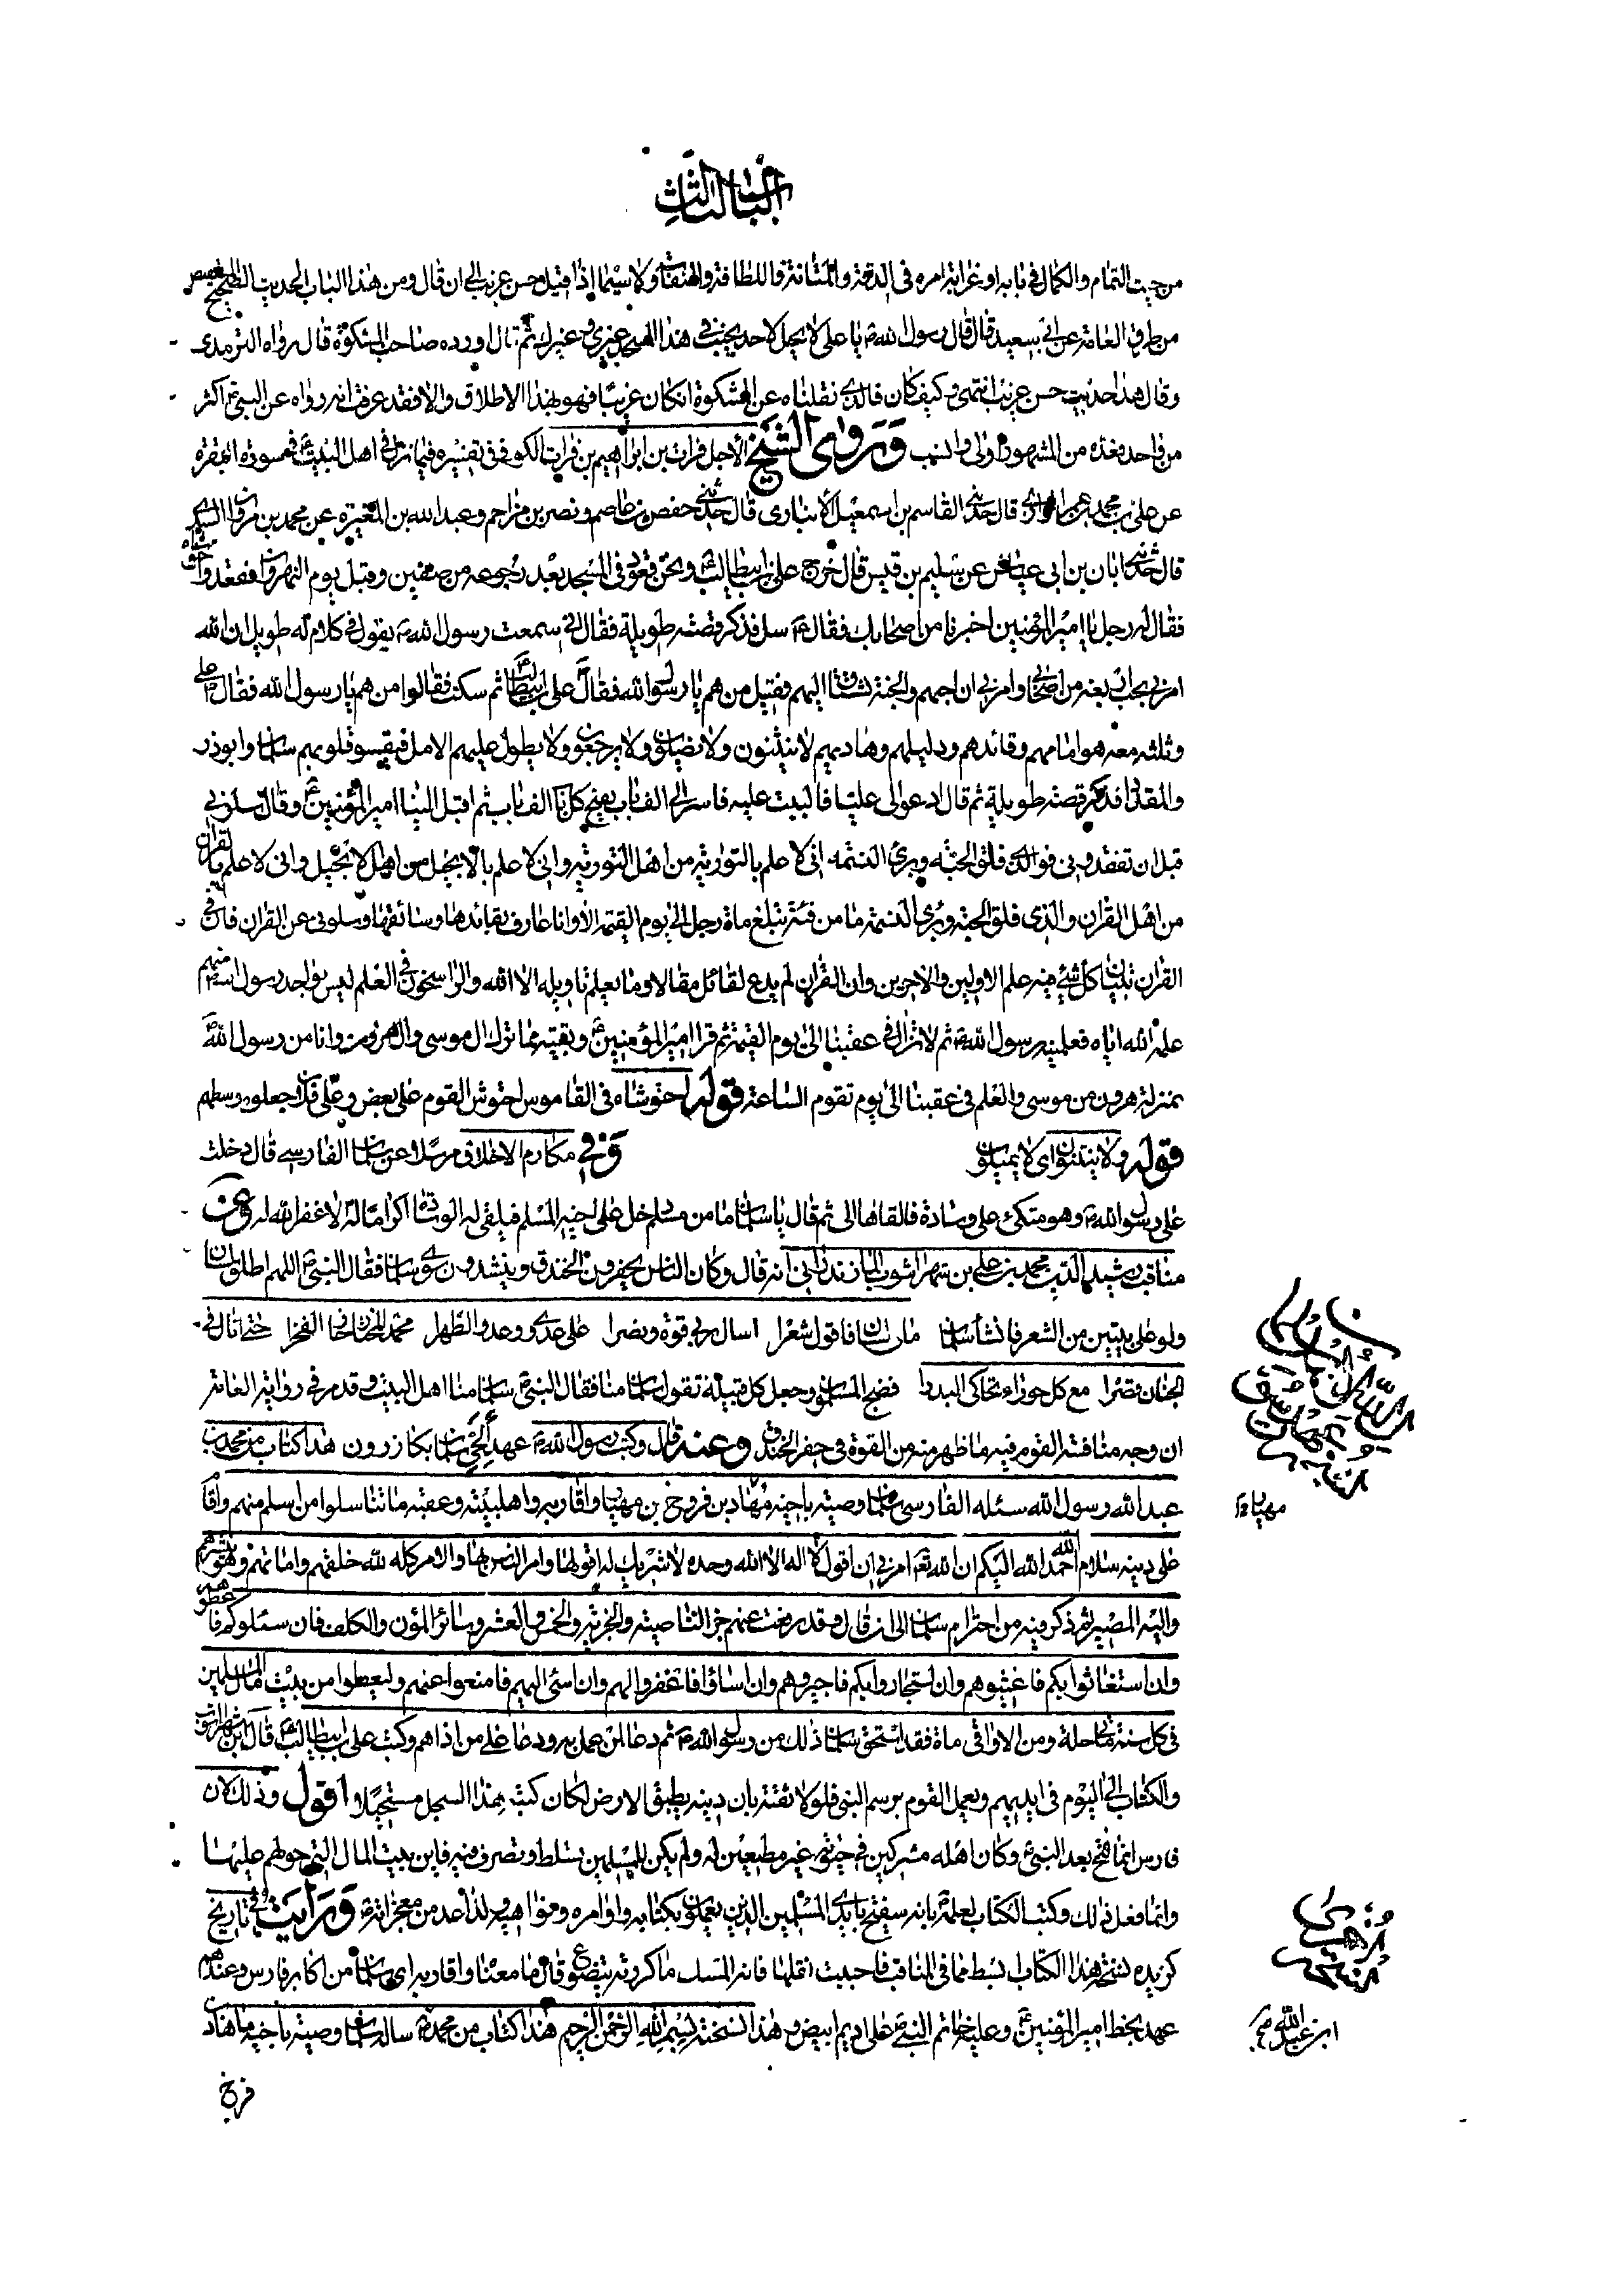 الباب الثالث
من حيث التمام والكمال في بابه او غرابة امره في الدقة والمتانة واللطافة ولا سيما اذا قيل حسن غريب الى ان قال ومن هذا الباب الحديث الصحيح
من طرق العامة عن ابي سعيد قال قال رسول الله ص يا علي لا يحل لاحد يجنب في هذا المسجد غيري وغيرك ثم قال اورده صاحب المشكوة قال رواه الترمذي
وقال هذا حديث حسن غريب انتهى وكيف كان فالذي نقلناه عن المشكوة ان كان غريبا فهو بهذا الاطلاق والا فقد عرفت انه رواه عن النبي ص اكثر
من واحد فعده من المشهور اولى وانسب وروى الشيخ الاجل فرات بن ابراهيم بن فرات الكوفي في تفسيره فيما نزل في اهل البيت ع في سورة البقرة
عن علي بن محمد بن عمر الزهري قال حدثني القاسم بن اسمعيل الانباري قال حدثني حفص بن عاصم ونصر بن مزاحم وعبد الله بن المغيرة عن محمد بن مروان السدي
قال حدثني ابان بن ابي عياش عن سليم بن قيس قال خرج علي بن ابيطالب ع ونحن قعود في المسجد بعد رجوعه من صفين وقبل يوم النهروان فقعد واحتوشناه
فقال له رجل يا امير المؤمنين اخبرنا من اصحابك فقال ع سل فذكر قصة طويلة فقال اني سمعت رسول الله ص يقول في كلام له طويل ان الله
امرني بحب اربعة من اصحابي وامرني ان احبهم والجنة تشتاق اليهم فقيل من هم يا رسول الله فقال ص علي بن ابيطالب ع ثم سكت فقالوا من هم يا رسول الله فقال علي ع
وثلثة معه هو امامهم وقائدهم ودليلهم وهاديهم لا ينثنون ولا يضلون ولا يرجعون ولا يطول عليهم الامل فيقسو قلوبهم سلمان وابوذر
والمقداد فذكر قصة طويلة ثم قال ادعوا لي عليا فاكببت عليه فاسر الي الف باب يفتح كل باب الف باب ثم اقبل الينا امير المؤمنين ع وقال سلوني
قبل ان تفقدوني فوالذي فلق الحبة وبرئ النسمة اني لاعلم بالتورية من اهل التورية واني لاعلم بالانجيل من اهل الانجيل واني لاعلم بالقران
من اهل القران والذي فلق الحبة وبرئ النسمة ما من فئة تبلغ مأة رجل الى يوم القيمة الا وانا عارف بقائدها وسائقها وسلوني عن القران فان في
القران تبيان كل شئ فيه علم الاولين والاخرين وان القران لم يدع لقائل مقالا وما يعلم تاويله الا الله والراسخون في العلم ليس بواحد رسول الله منهم
علمه الله اياه فعلمنيه رسول الله ص ثم لا تزال في عقبنا الى يوم القيمة ثم قرا امير المؤمنين ع وبقية مما ترك ال موسى وال هرون وانا من رسول الله ص
بمنزلة هرون من موسى والعلم في عقبنا الى يوم تقوم الساعة قوله احتوشناه في القاموس احتوش القوم على بعض وعلى فلان جعلوه وسطهم
قوله ولا ينثنون اي لا يميلون وفي مكارم الاخلاق مرسلا عن سلمان الفارسي قال دخلت
على رسول الله ص وهو متكئ على وسادة فالقاها الي ثم قال يا سلمان ما من مسلم دخل على اخيه المسلم فيلقى له الوسادة اكراما له الا غفر الله له وعن
مناقب رشيد الدين محمد بن علي بن شهراشوب المازندراني انه قال وكان الناس يحفرون الخندق وينشدون سوى سلمان فقال النبي ص اللهم اطلق لسان سلمان
ولو على بيتين من الشعر فانشأ سلمان ما لي لسان فاقول شعرا اسال ربي قوة ونصرا على عدوي وعدو الطهر محمد المختار حاز الفخرا حتى انال في
الجنان قصرا مع كل حوراء تحاكي البدرا فضج المسلمون وجعل كل قبيلة تقول سلمان منا فقال النبي ص سلمان منا اهل البيت وقد مر في رواية العامة
ان وجه منافسة القوم فيه ما ظهر منه من القوة في حفر الخندق وعنه قال وكتب رسول الله ص عهدا لحي سلمان بكازرون هذا كتاب من محمد بن
عبد الله رسول الله سئله الفارسي سلمان وصية باخيه مهاد بن فروخ بن مهيار واقاربه واهل بيته وعقبه ما تناسلوا من اسلم منهم واقام
على دينه سلام الله احمد الله اليكم ان الله تع امرني ان اقول لا اله الا الله وحده لا شريك له اقولها وامر الناس بها والامر كله لله خلقهم واماتهم وهو ينشرهم
واليه المصير ثم ذكر فيه من احترام سلمان الى ان قال وقد رفعت عنهم جز الناصية والجزية والخمس والعشر وسائر المؤن والكلف فان سئلوكم فاعطوهم
وان استغاثوا بكم فاغيثوهم وان استجاروا بكم فاجيروهم وان اساؤا فاغفروا لهم وان اسئ اليهم فامنعوا عنهم وليعطوا من بيت مال المسلمين
في كل سنة ماتي حلة ومن الاواقي مأة فقد استحق سلمان ذلك من رسول الله ص ثم دعا لمن عمل به ودعا على من اذاهم وكتب علي بن ابيطالب ع قال ابن شهراشوب
والكتاب الى اليوم في ايديهم ويعمل القوم برسم النبي فلولا ثقته بان دينه يطبق الارض لكان كتبه بهذا السجل مستحيلا اقول وذلك لان
فارس انما فتح بعد النبي ص وكان اهله مشركين في حيوته غير مطيعين له ولم يكن للمسلمين تسلط وتصرف فيه فاين بيت المال التي حولهم عليها
وانما فعل ذلك وكتب الكتاب لعلمه بانه سيفتح بايدي المسلمين الذين يعملون بكتابه واوامره ونواهيه ولذا عد من معجزاته ورايت في تاريخ
كزيده نسخة هذا الكتاب ابسط مما في المناقب فاحببت نقلها فانه المسك ما كررته يتضوع قال ما معناه واقارب اي سلمان من اكابر فارس وعندهم
عهد بخط امير المؤمنين ع وعليه خاتم النبي ص على اديم ابيض وهذا نسخته بسم الله الرحمن الرحيم هذا كتاب من محمد ص ساله سلمان وصية باخيه ماهاد
فرخ
مهيار
ابن عبد الله